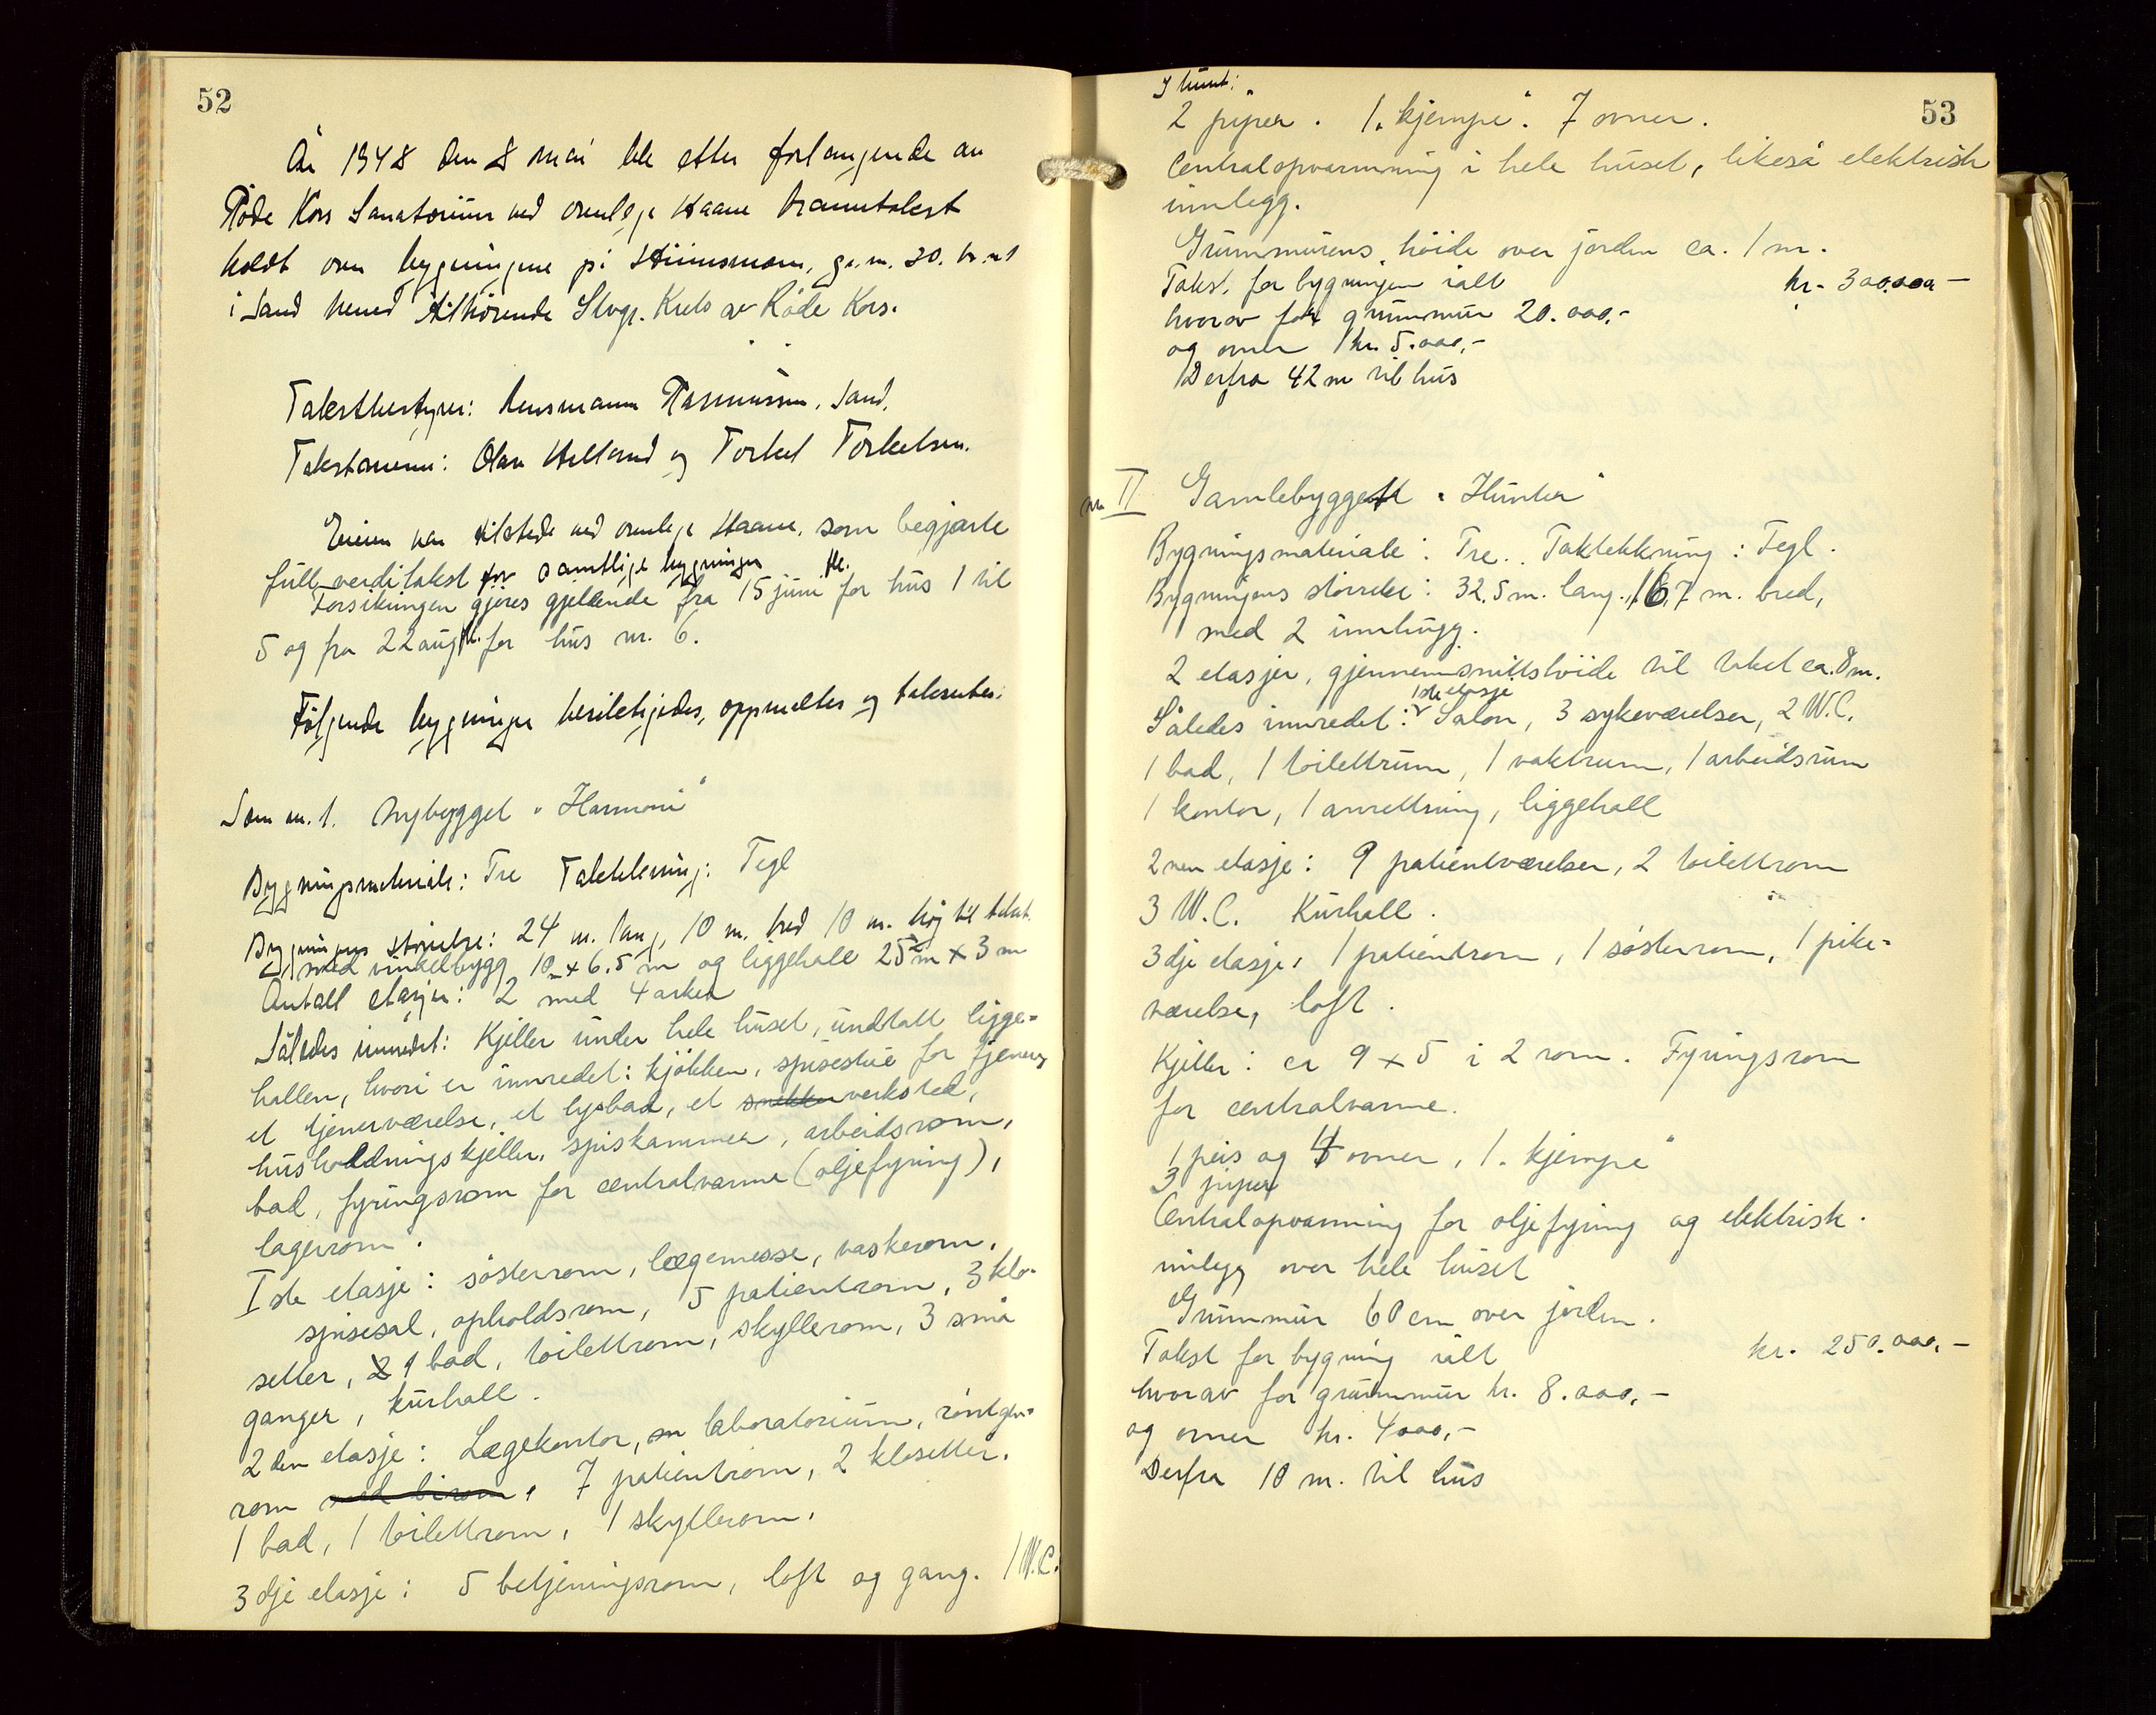 52
År 1948 den 8 mai ble etter forlangende av
Røde Kors Sanatorium ved overlege Haave branntakst
holdt over bygningene på gr.m. 30. br.nr 1
i Sand herred tilhørende Stvgr. Krets av Røde Kors.
Takstbestyrer: lensmann Rasmussen, Sand.
Takstmenn: Olav Helland og Torkel Torkelsen.
Eieren var tilstede ved overlege Haave, som begjærte
full verditakst for samtlige bygninger
Forsikringen gjøres gjeldende fra 15 juni f.k. for hus 1 til
5 og fra 22 aug f.k. for hus nr. 6.
Følgende bygninger besiktigedes, oppmåltes og taksertes:
Som nr. 1. Nybygget "Harmoni"
Bygningsmateriale: Tre Taktekkning: Tegl
Bygningens størrelse: 24 m. lang, 10 m. bred 10 m. høy til taket.
med vinkelbygg 10 x 6.5 m og liggehall 25 m x 3 m
Antall etasjer: 2 med 4 arker
Således innredet: Kjeller under hele huset, undtatt ligge-
hallen, hvori er innredet: kjøkken, spisestue for tjenere,
et tjenerværelse, et lysbad, et snekker verksted,
husholdningskjeller, spiskammer, arbeidsrom,
bad, fyringsrom for centralvarme (oljefyring),
lagerrom.
I ste etasje: søsterrom, lægemesse, vaskerom,
spisesal, opholdsrom, 5 patientrom, 3 klo-
setter, 2 1 bad, toilettrom, skyllerom, 3 små
ganger, kurhall.
2 den etasje: Lægekontor, laboratorium, röntgen-
rom med birom, 7 patientrom, 2 klosetter,
1 bad, 1 toilettrom, 1 skyllerom,
3 dje etasje: 5 betjeningsrom, loft og gang. 1 W.C.
53
2 piper. 1 "kjempe". 7 ovner.
Centralopvarmning i hele huset, likeså elektrisk
innlegg.
Grunnmurens høide over jorden ca. 1 m.
Takst for bygningen ialt kr. 300.000 -
hvorav for grunnmur 20.000,-
og ovner kr. 5.000,-
Derfra 42 m til hus
nr. II Gamlebygget "Hunter"
Bygningsmateriale: Tre. Taktekkning: Tegl.
Bygningens størrelse: 32.5 m. lang, 16,7 m. bred,
med 2 innhugg.
2 etasjer, gjennemsnittshöide til taket ca. 8 m.
1ste etasje
Således innredet: Salon, 3 sykeværelser, 2 W.C.
1 bad, 1 toilettrum, 1 vaktrum, 1 arbeidsrum
1 kontor, 1 anrettning, liggehall
2nen etasje: 9 patientværelser, 2 toilettrom
3 W.C. Kurhall.
3dje etasje, 1 patientrom, 1 søsterrom, 1 pike-
værelse, loft.
Kjeller: er 9 x 5 i 2 rom. Fyringsrom
for centralvarme.
1 peis og 4 ovner, 1 "kjempe"
3 piper
Centralopvarmning for oljefyring og elektrisk
innlegg over hele huset
Grunnmur 60 cm over jorden.
Takst for bygning ialt kr. 250.000,-
hvorav for grunnmur kr. 8.000,-
og ovner kr. 4000,-
Derfra 10 m. til hus